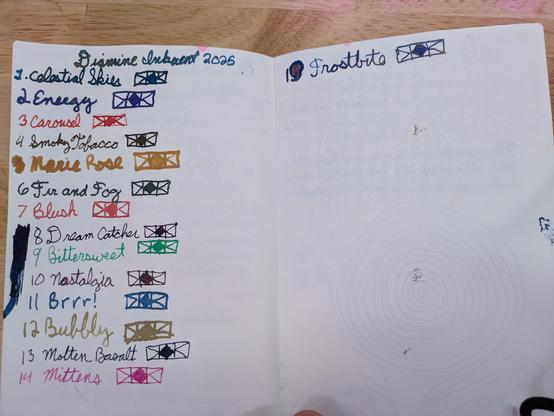 Diamine Inkvent 2025
1. Celestial Skies
2 Energy
3 Carousel
4 Smoky Tobacco
5 Marie Rose
6 Fir and Fog
7 Blush
8 Dream Catcher
9 Bittersweet
10 Nostalgia
11 Brrr!
12 Bubbly
13 Molten Basalt
14 Mittens
15 Frostbite